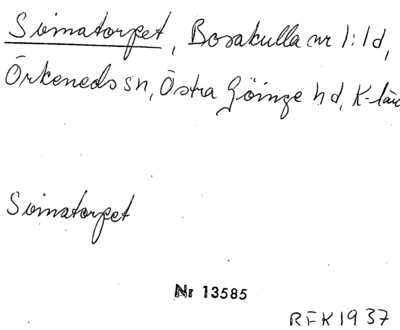 Simatorpet, Bosakulla nr 1:1d,
Örkeneds sn, Östra Göinge hd, K-län
Simatorpet
Nr 13585
RFK 1937